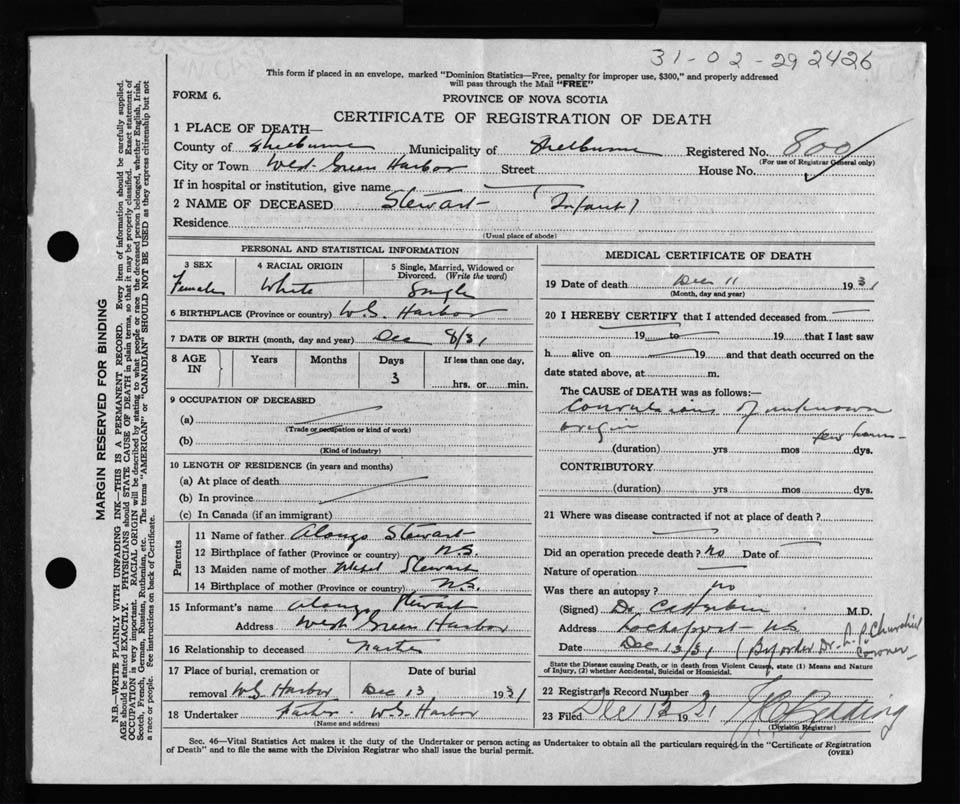 31-02-292426
This form if placed in an envelope, marked "Dominion Statistics—Free, penalty for improper use, $300," and properly addressed
will pass through the Mail "FREE"
FORM 6.
PROVINCE OF NOVA SCOTIA
CERTIFICATE OF REGISTRATION OF DEATH
1 PLACE OF DEATH—
County of Shelburne Municipality of Shelburne Registered No. 800
(For use of Registrar General only)
City or Town West Green Harbor Street House No.
If in hospital or institution, give name
2 NAME OF DECEASED Stewart Infant
Residence
(Usual place of abode)
PERSONAL AND STATISTICAL INFORMATION
3 SEX 4 RACIAL ORIGIN 5 Single, Married, Widowed or
Divorced. (Write the word)
Female White Single
6 BIRTHPLACE (Province or country) W.G. Harbor
7 DATE OF BIRTH (month, day and year) Dec 8/31
8 AGE IN Years Months Days If less than one day,
3 hrs. or min.
9 OCCUPATION OF DECEASED
(a)
(Trade or occupation or kind of work)
(b)
(Kind of industry)
10 LENGTH OF RESIDENCE (in years and months)
(a) At place of death
(b) In province
(c) In Canada (if an immigrant)
Parents
11 Name of father Alonzo Stewart
12 Birthplace of father (Province or country) N.S.
13 Maiden name of mother Stewart
14 Birthplace of mother (Province or country) N.S.
15 Informant's name Alonzo Stewart
Address West Green Harbor
16 Relationship to deceased
17 Place of burial, cremation or Date of burial
removal W.G. Harbor Dec 13 1931
18 Undertaker W.G. Harbor
(Name and address)
MEDICAL CERTIFICATE OF DEATH
19 Date of death Dec 11 1931
(Month, day and year)
20 I HEREBY CERTIFY that I attended deceased from
19 to 19 that I last saw
h alive on 19 and that death occurred on
date stated above, at m.
The CAUSE of DEATH was as follows:
Convulsions of unknown
origin few hours
(duration) yrs mos dys.
CONTRIBUTORY
(duration) yrs mos dys.
21 Where was disease contracted if not at place of death?
Did an operation precede death? no Date of
Nature of operation
Was there an autopsy? no
(Signed) Dr. M.D.
Address Lockeport N.S.
Date Dec 13/31 (By order Dr. Churchill
Coroner
State the Disease causing Death, or in death from Violent Causes, state (1) Means and Nature
of Injury, (2) whether Accidental, Suicidal or Homicidal.
22 Registrar's Record Number
23 Filed Dec 1931
(Division Registrar)
Sec. 46—Vital Statistics Act makes it the duty of the Undertaker or person acting as Undertaker to obtain all the particulars required in the "Certificate of Registration
of Death" and to file the same with the Division Registrar who shall issue the burial permit. (OVER)
MARGIN RESERVED FOR BINDING
N.B.—WRITE PLAINLY WITH UNFADING INK—THIS IS A PERMANENT RECORD. Every item of information should be carefully supplied.
AGE should be stated EXACTLY. PHYSICIANS should STATE CAUSE OF DEATH in plain terms, so that it may be properly classified. Exact statement of
OCCUPATION is very important. RACIAL ORIGIN will be described by stating to what people or race the deceased person belonged, whether English, Irish,
Scotch, French, German, Russian, Ruthenian, etc. The terms "AMERICAN" or "CANADIAN" SHOULD NOT BE USED as they express citizenship but not
a race or people. See instructions on back of Certificate.